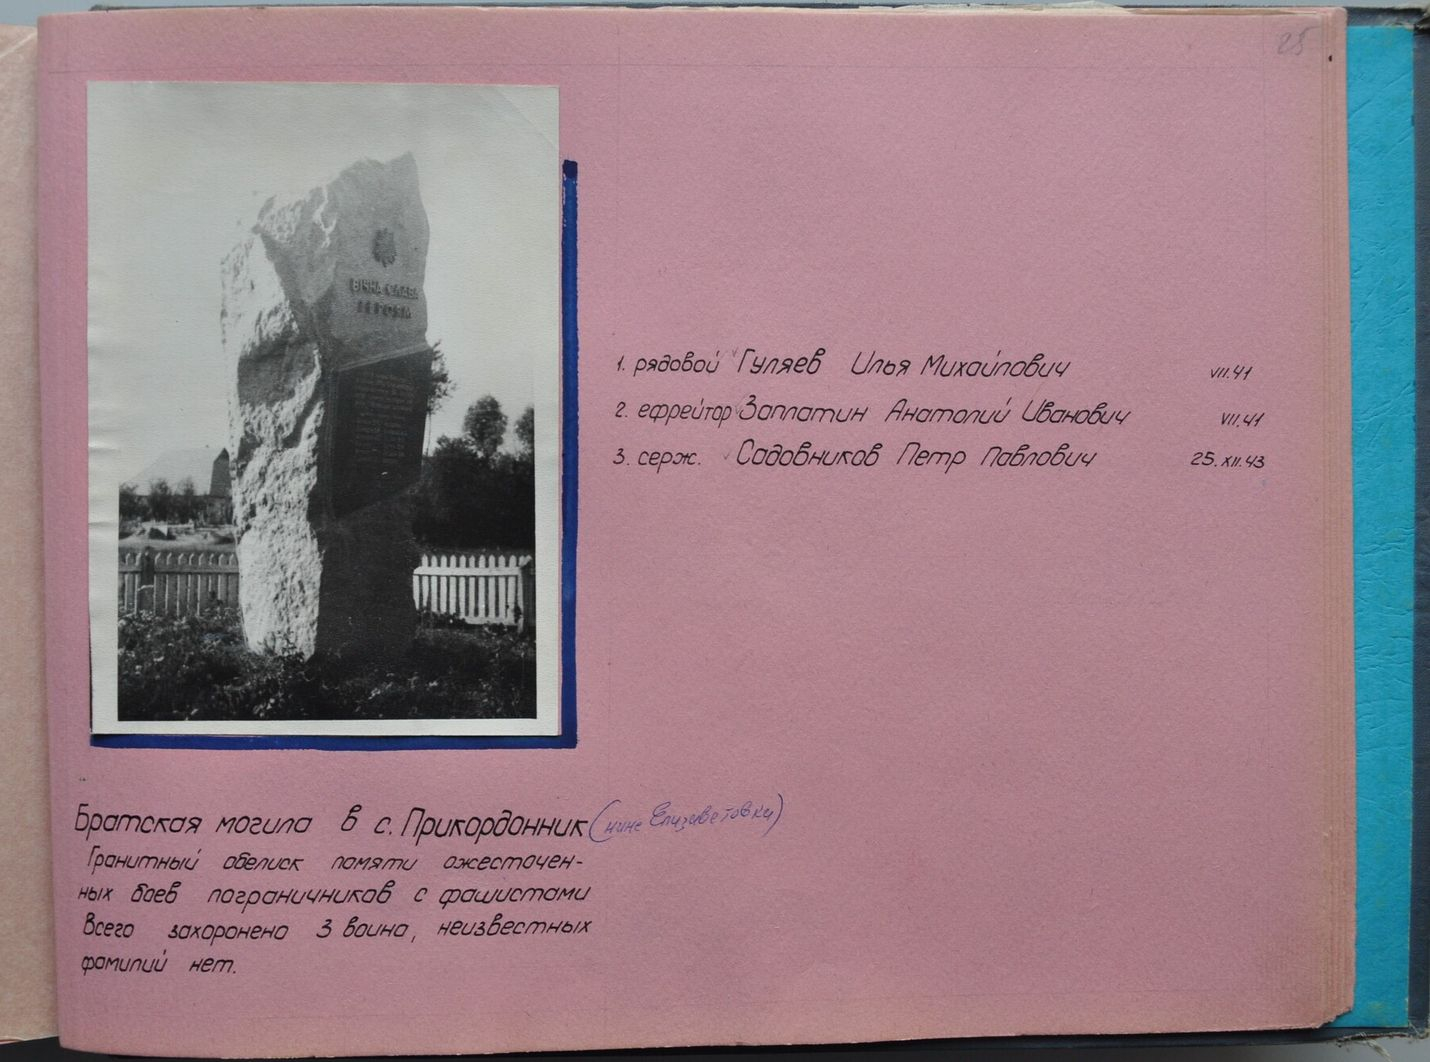 25
ВІЧНА СЛАВА
ГЕРОЯМ
1. рядовой Гуляев Илья Михайлович VII.41
2. ефрейтор Заплатин Анатолий Иванович VII.41
3. серж. Садовников Петр Павлович 25.XII.43
Братская могила в с. Прикордонник (нине Елизаветовки)
Гранитный обелиск памяти ожесточен-
ных боев пограничников с фашистами
Всего захоронено 3 воина, неизвестных
фамилий нет.